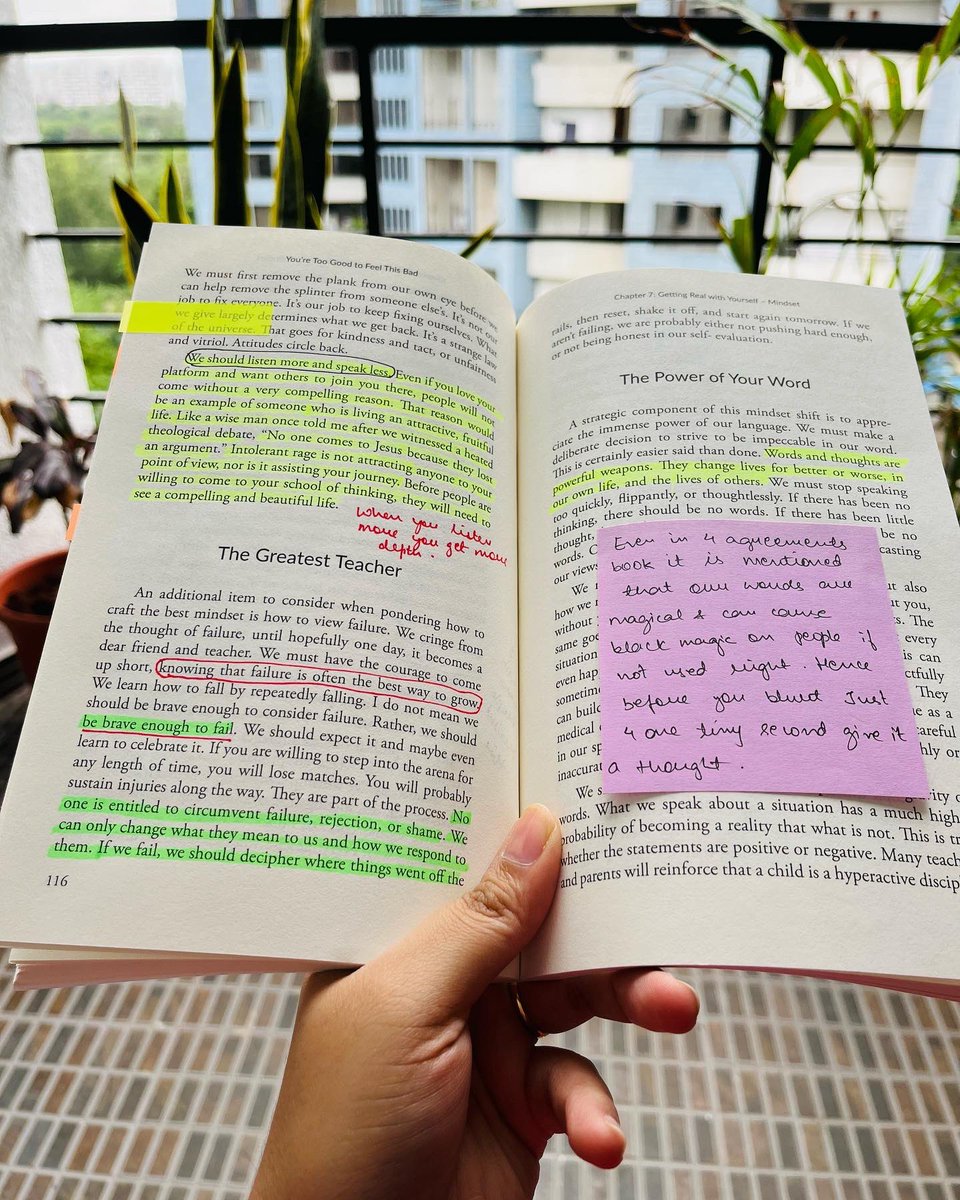 You're Too Good to Feel This Bad
We must first remove the plank from our own eye before we
can help remove the splinter from someone else's. It's not our
job to fix everyone. It's our job to keep fixing ourselves. What
we give largely determines what we get back. It's a strange law
of the universe. That goes for kindness and tact, or unfairness
and vitriol. Attitudes circle back.
We should listen more and speak less. Even if you love your
platform and want others to join you there, people will not
come without a very compelling reason. That reason would
be an example of someone who is living an attractive, fruitful
life. Like a wise man once told me after we witnessed a heated
theological debate, "No one comes to Jesus because they lost
an argument." Intolerant rage is not attracting anyone to your
point of view, nor is it assisting your journey. Before people are
willing to come to your school of thinking, they will need to
see a compelling and beautiful life.
when you listen
more you get more
depth.
The Greatest Teacher
An additional item to consider when pondering how to
craft the best mindset is how to view failure. We cringe from
the thought of failure, until hopefully one day, it becomes a
dear friend and teacher. We must have the courage to come
up short, knowing that failure is often the best way to grow.
We learn how to fall by repeatedly falling. I do not mean we
should be brave enough to consider failure. Rather, we should
be brave enough to fail. We should expect it and maybe even
learn to celebrate it. If you are willing to step into the arena for
any length of time, you will lose matches. You will probably
sustain injuries along the way. They are part of the process. No
one is entitled to circumvent failure, rejection, or shame. We
can only change what they mean to us and how we respond to
them. If we fail, we should decipher where things went off the
116
Chapter 7: Getting Real with Yourself – Mindset
rails, then reset, shake it off, and start again tomorrow. If we
aren't failing, we are probably either not pushing hard enough,
or not being honest in our self- evaluation.
The Power of Your Word
A strategic component of this mindset shift is to appre-
ciate the immense power of our language. We must make a
deliberate decision to strive to be impeccable in our word.
This is certainly easier said than done. Words and thoughts are
powerful weapons. They change lives for better or worse, in
our own life, and the lives of others. We must stop speaking
too quickly, flippantly, or thoughtlessly. If there has been no
thinking, there should be no words. If there has been little
thought, be no
words. casting
our views
We but also
how we you,
without The
same every
situation is can
even hap ctfully
sometime They
can build e as a
medical careful
in our sp hly or
inaccurat
Even in 4 agreements
book it is mentioned
that our words are
magical & can cause
black magic on people if
not used right. Hence
before you blurt Just
4 one tiny second give it
a thought.
We s of
words. What we speak about a situation has a much high
probability of becoming a reality that what is not. This is tr
whether the statements are positive or negative. Many teach
and parents will reinforce that a child is a hyperactive discipl